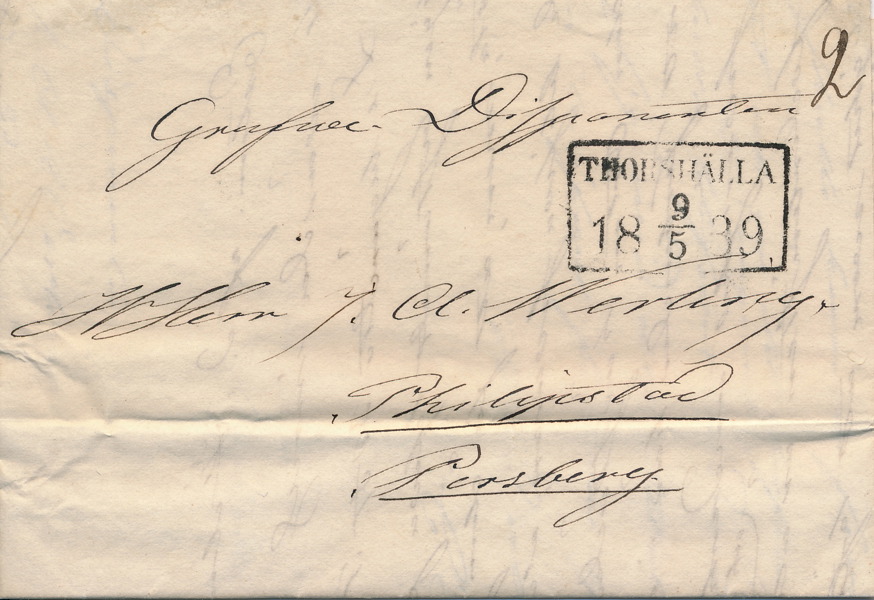 2
Grufve- Disponenten
THORSHÄLLA
18 9/5 39
Herr J. A. Werling,
Philipstad
Persberg